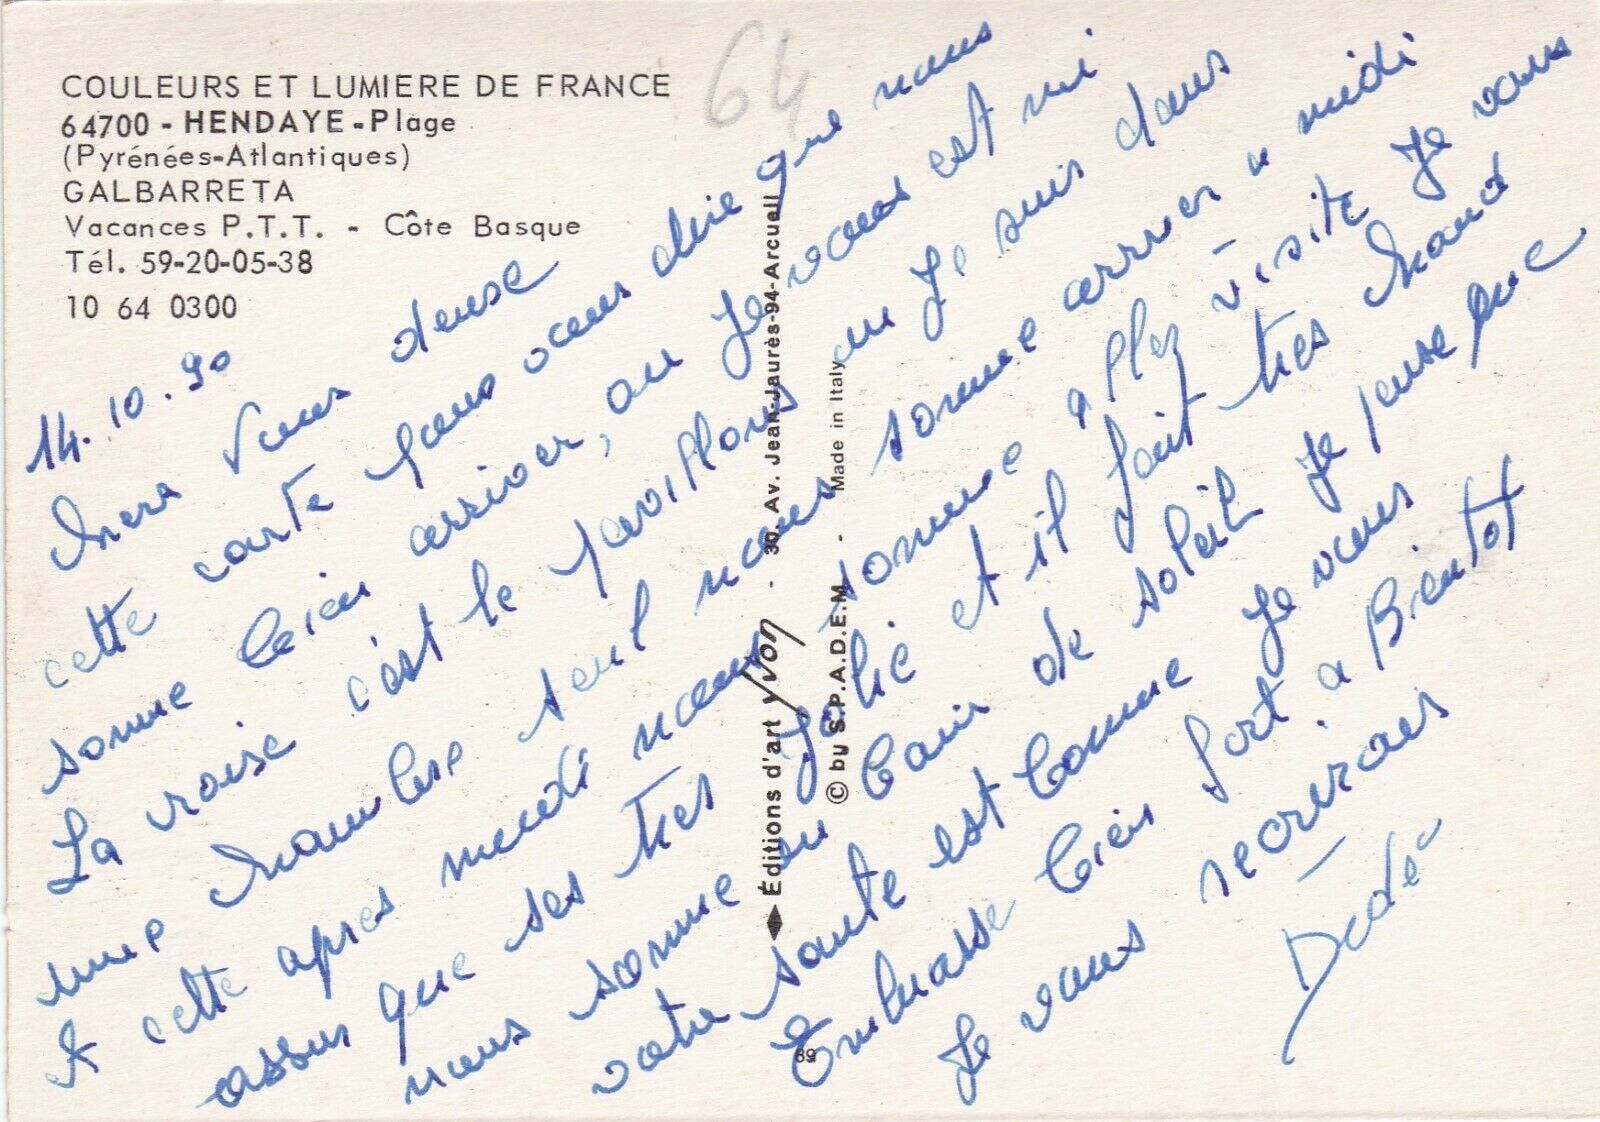 COULEURS ET LUMIERE DE FRANCE
64700 - HENDAYE - Plage
(Pyrénées-Atlantiques)
GALBARRETA
Vacances P.T.T. - Côte Basque
Tél. 59-20-05-38
10 64 0300
64
14.10.90
vous
cette carte pour vous dire que nous
somme bien arriver, ou Je vous est mi
La croise c'est le pavillons ou Je suis dans
une chambre seul nous somme arriver a midi
et cette apres nous somme allez visite Je vous
assur que ses tres Jolie et il fait tres chaud
nous somme en bain de soleil Je pense que
votre sante est bonne Je vous
Embrasse bien fort a Bientot
Je vous recrirais
Dédée
Éditions d'art yvon - 30, Av. Jean-Jaurès-94-Arcueil
© by S.P.A.D.E.M. - Made in Italy
89